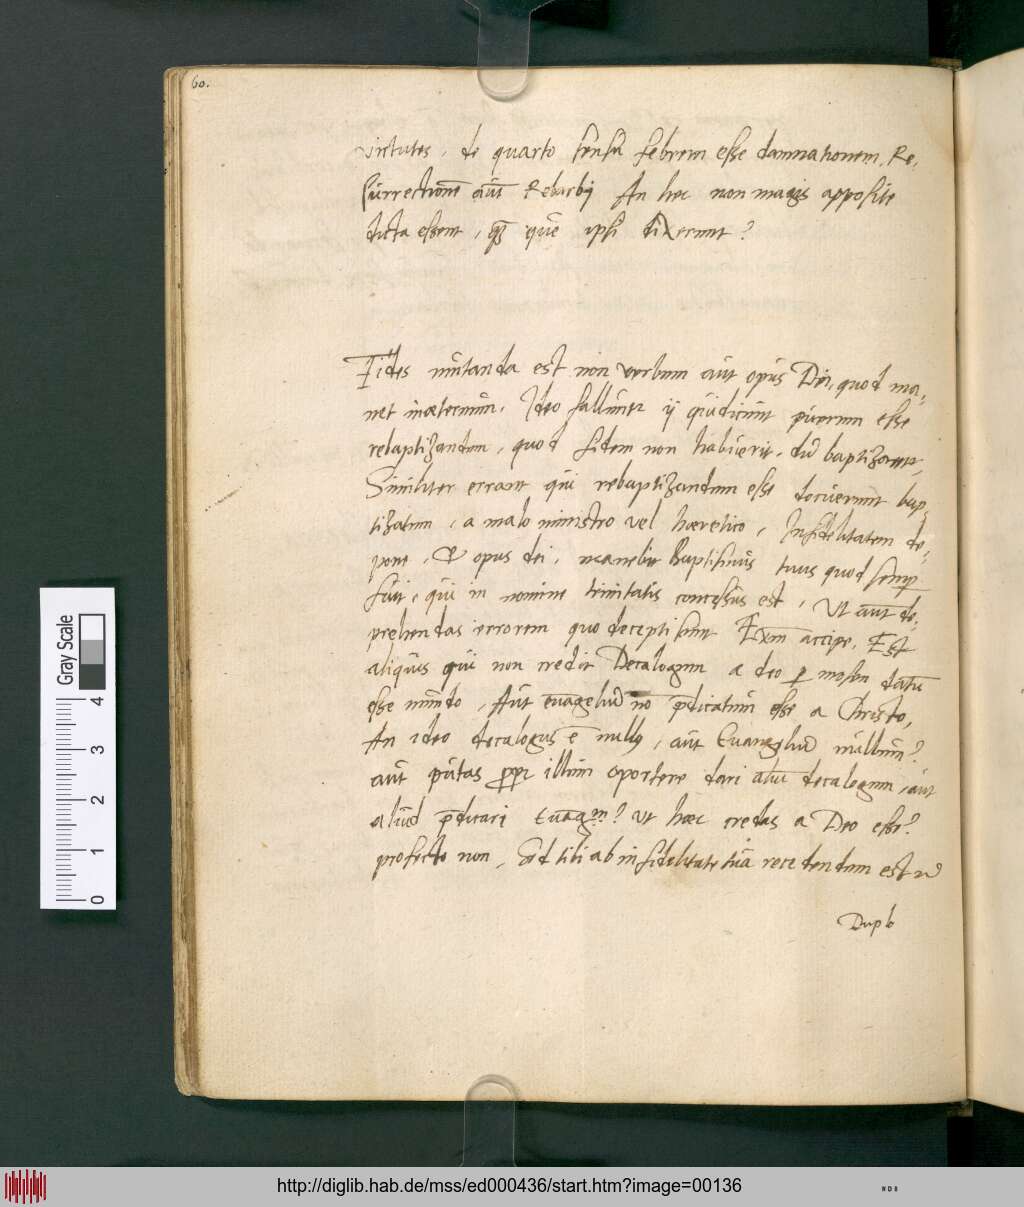 60.
virtutes, de quarto sensu febrem esse damnationem, Re,
surrectionē aūt Rebarbÿ An hec non magis apposite
dicta essent, quā que ipsi dixerunt?
Fides mutanda est non verbum aut opus Dei, quod ma,
net inaeternum, Ideo falluntur ij qui dicunt puerum esse
rebaptizandum, quod fidem non habuerit, dū baptizaretur,
Similiter errant qui rebaptizandum esse docuerunt bap,
tizatum, a malo ministro vel haeretico, Infidelitatem de,
pone, & opus dei, manebit Baptismus tuus quod semper
fuit, qui in nomine trinitatis concessus est, Ut aūt de,
prehendas errorem quo decepti sunt Exm accipe, Est
aliquis qui non credit Decalogum a deo p mosen datū
esse mundo, Aut euāgeliū nō pdicatum esse a Christo,
An ideo decalogus ē nullus, aut Euangeliū nullum?
aut putas propter illum oportere dari aliū decalogum, aut
aliud pdicari Euāgm? ut haec credas a Deo esse?
profecto non, Sed tibi ab infidelitate tua recedendum est
Duplo
Gray Scale
0 1 2 3 4
http://diglib.hab.de/mss/ed000436/start.htm?image=00136